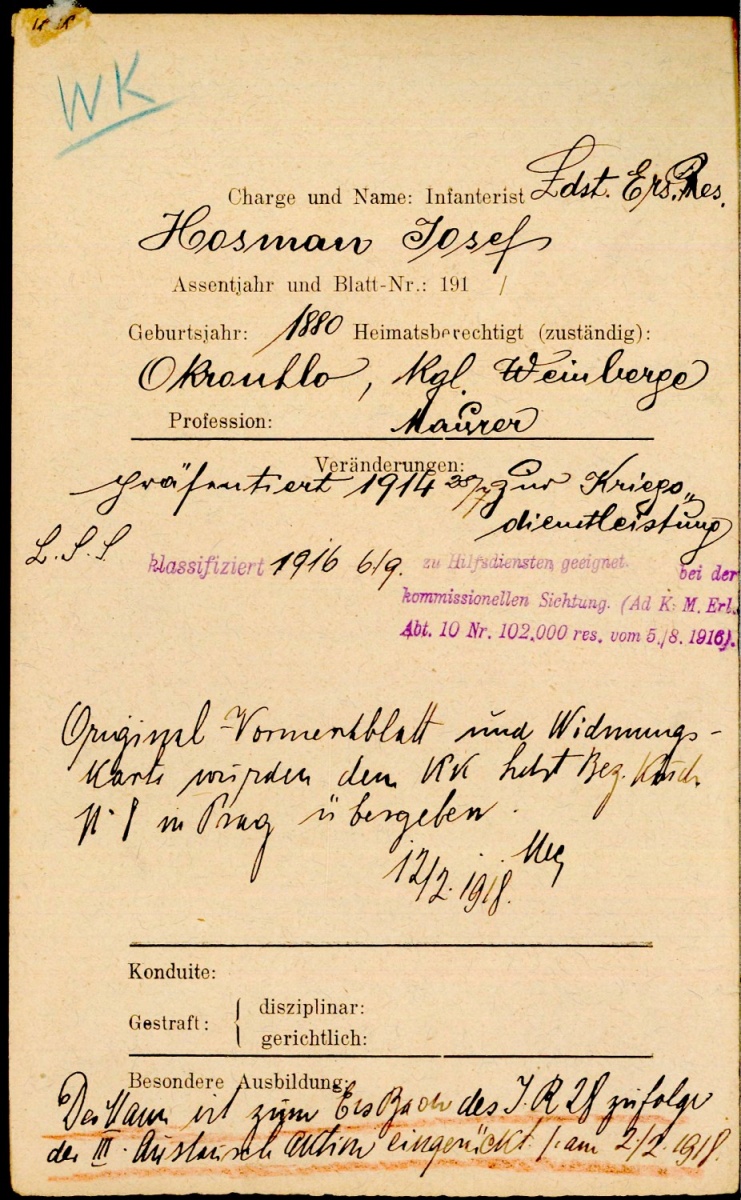 WK
Charge und Name: Infanterist Ldst. Ers. Res.
Hosman Josef
Assentjahr und Blatt-Nr.: 191 /
Geburtsjahr: 1880 Heimatsberechtigt (zuständig):
Okrouhlo, Kgl. Weinberge
Profession: Maurer
Veränderungen:
präsentiert 1914 28/7 zur Kriegs„
dienstleistung
L.S.S klassifiziert 1916 6/9. zu Hilfsdiensten geeignet. bei der
kommissionellen Sichtung. (Ad K. M. Erl.
Abt. 10 Nr. 102.000 res. vom 5./8. 1916).
Original-Vormerkblatt und Widmungs-
karte wurden dem KK Ldst Bez. Kdo.
N. 8 in Prag übergeben.
12/2. 1918.
Konduite:
Gestraft: { disziplinar:
gerichtlich:
Besondere Ausbildung:
Der Mann ist zum Ers Baon des I.R 28 zufolge
der III. Austausch aktion eingerückt /. am 2./2. 1918.